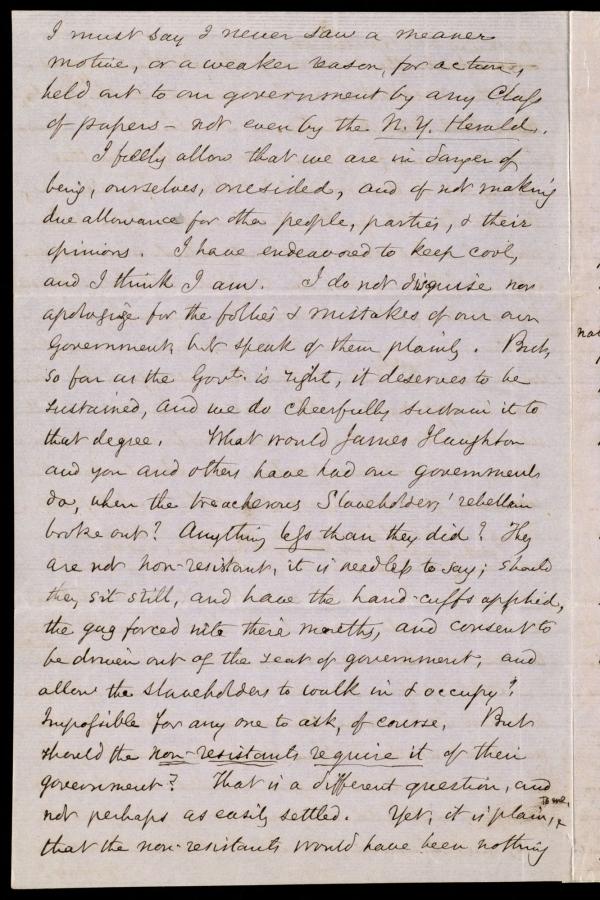 I must say I never saw a meaner
motive, or a weaker reason, for action,
held out to our government by any Class
of papers - not even by the N. Y. Herald.
I fully allow that we are in danger of
being, ourselves, onesided, and of not making
due allowance for other people, parties, & their
opinions. I have endeavored to keep cool,
and I think I am. I do not disguise nor
apologize for the follies & mistakes of our own
Government, but speak of them plainly. But,
so far as the Govt. is right, it deserves to be
sustained, and we do cheerfully sustain it to
that degree. What would James Haughton
and you and others have had our government
do, when the treacherous Slaveholders' rebellion
broke out? Anything less than they did? They
are not non-resistant, it is needless to say; should
they sit still, and have the hand-cuffs applied,
the gag forced into their mouths, and consent to
be driven out of the seat of government, and
allow the slaveholders to walk in & occupy?
Impossible for any one to ask, of course. But
should the non-resistants require it of their
government? That is a different question, and
not perhaps as easily settled. Yet, it is plain, to me,
that the non-resistants would have been nothing